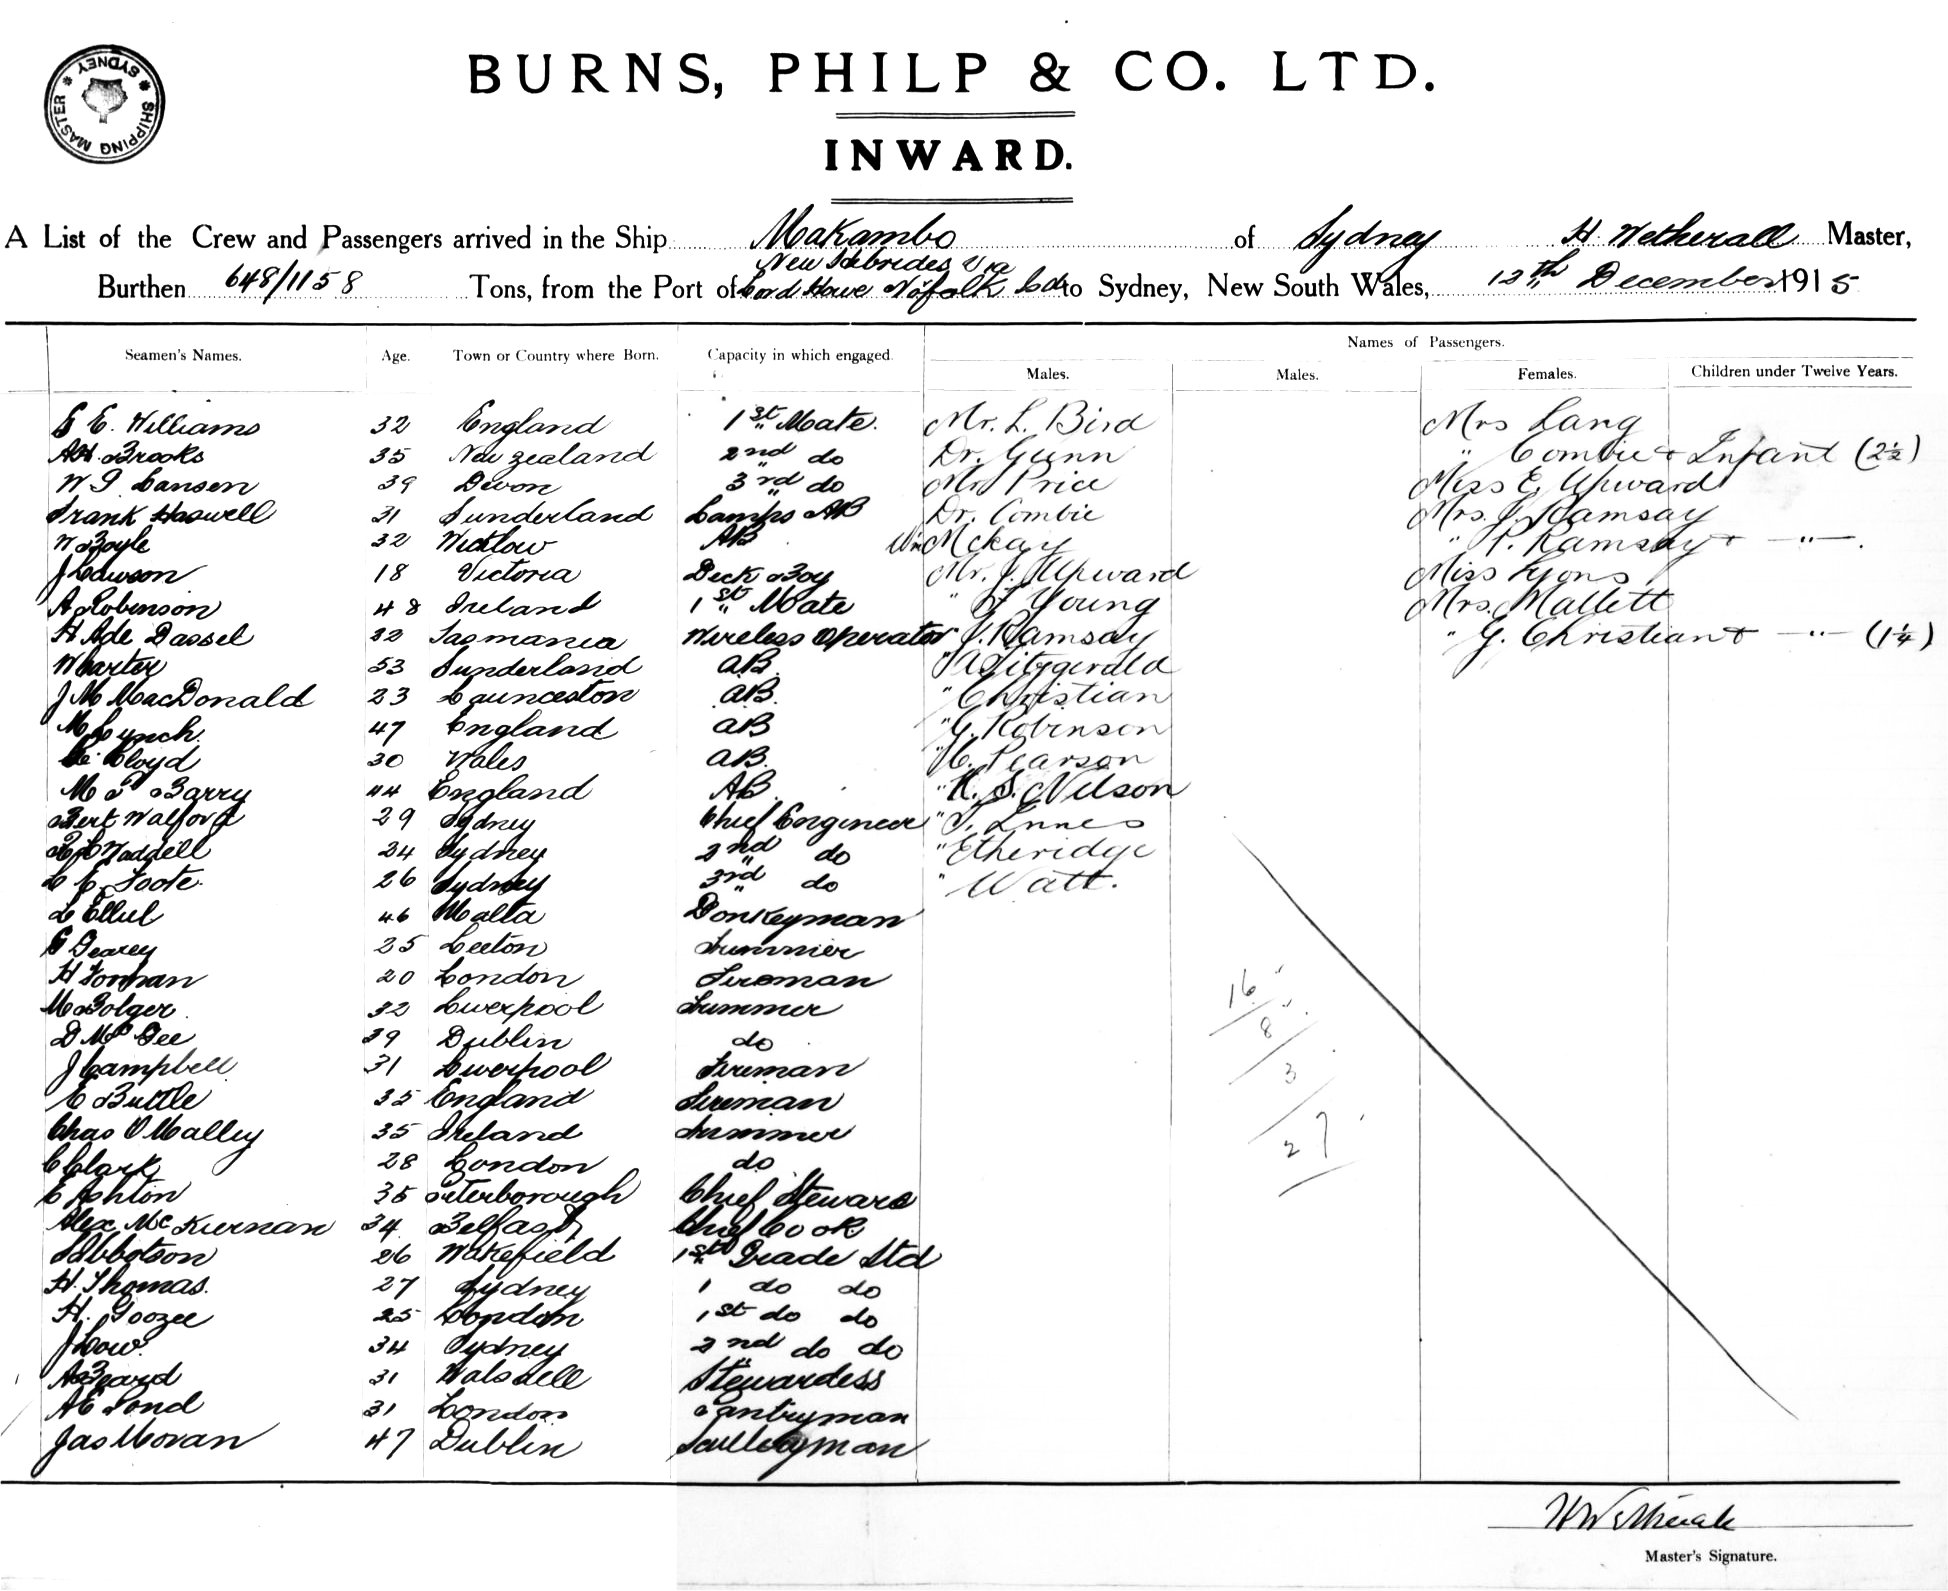 SHIPPING MASTER * SYDNEY *
BURNS, PHILP & CO. LTD.
INWARD.
A List of the Crew and Passengers arrived in the Ship Makambo of Sydney H. Wetherall Master,
New Hebrides Via
Burthen 648/1158 Tons, from the Port of Lord Howe Norfolk to Sydney, New South Wales, 12th December 1915
Names of Passengers.
Seamen's Names. Age. Town or Country where Born. Capacity in which engaged.
Males. Males. Females. Children under Twelve Years.
E. Williams 32 England 1st Mate. Mr. L. Bird Mrs Lang
AH Brooks 35 New Zealand 2nd do Dr. Gunn " Combie + Infant (2½)
39 Devon 3rd do Mr Price Miss E. Upward
Frank Haswell 31 Sunderland Lamps AB Dr. Combie Mrs. J. Ramsay
W Boyle 32 Wicklow AB Wm Mckay " P. Ramsay + — " —.
J Lawson 18 Victoria Deck Boy Mr. J. Upward Miss Lyons
A Robinson 48 Ireland 1st Mate " Young Mrs. Mallett
H A de Dassel 32 Tasmania Wireless Operator J. Ramsay " G. Christian + — " — (1¼)
W Carter 53 Sunderland AB. " A Fitzgerald
J M MacDonald 23 Launceston AB. " Christian
M Lynch. 47 England AB " G. Robinson
Lloyd 30 Wales AB. " C. Pearson
M P Barry 44 England AB. " K. S. Nilson
Bert Walford 29 Sydney Chief Engineer " T. Innes
Waddell 24 Sydney 2nd do " Etheridge
C E. Foote. 26 Sydney 3rd do " Watt.
L Ellul 46 Malta Donkeyman
G Dearey 25 Leeton Trimmer
H Forman 20 London Fireman
M Bolger. 32 Liverpool Trimmer
D McGee 39 Dublin do
J Campbell 31 Liverpool Fireman
E Buttle 35 England Fireman
Chas O Malley 35 Ireland Trimmer
C Clark 28 London do
E Ashton 35 Peterborough Chief Steward
Alex McKiernan 34 Belfast Chief Cook
Ibbotson 26 Wakefield 1st Grade Std
H. Thomas. 27 Sydney 1 do do
H. Goozee 25 London 1st do do
J Low. 34 Sydney 2nd do do
A Beard 31 Walsdell Stewardess
A E Pond 31 London Pantryman
Jas Moran 47 Dublin Sculleryman
16
8
3
27
H Wetherall
Master's Signature.